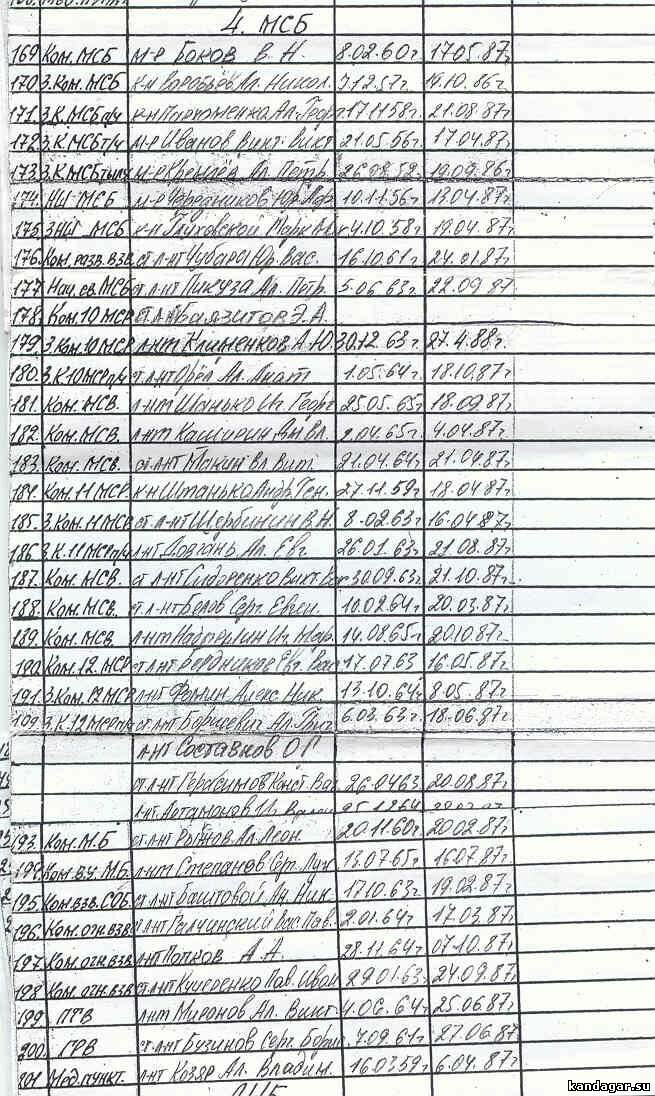 4. МСБ
169 Ком. МСБ м-р Боков В. Н. 8.02.60г. 17.05.87г
170 З.Ком. МСБ к-н Воробьёв Ал. Никол. 7.12.57г. 14.10.86г.
171. З.К.МСБп/ч к-н Пархоменко Ал. Георг 17.11.58г. 21.08.87г
172 З.К.МСБт/ч м-р Иванов Викт. Викт 21.05.56г. 17.04.87г
173 З.К.МСБтыл м-р Ал. Петр. 26.08.52г. 19.09.86г
174. НШ МСБ м-р 10.11.56г 13.04.87г
175 ЗНШ МСБ к-н Марк 4.10.58г 19.04.87г
176 Ком. разв. взв. ст. л-нт Чубарь Юр. Вас. 16.10.61г 24.01.87г
177 Нач. св. МСБ ст. л-нт Пикуза Ал. Петр. 5.06.63г. 22.09.87
178 Ком. 10 МСР ст. л-нт Баязитов Э.А
179. З.Ком.10 МСР л-нт Клименков А.Ю. 30.12.63г. 27.4.88г.
180. З.К.10МСРп/ч ст. л-нт Орёл Ал. Анат 1.05.64г. 18.10.87г
181. Ком. МСВ. л-нт Шанько Иг. Георг 25.05.65г 18.09.87г
182. Ком. МСВ. л-нт Кашурин Вл. 2.04.65г. 4.04.87г.
183. Ком. МСВ. ст. л-нт Макин Вл. Вит. 21.04.64г 21.04.87г
184. Ком. 11 МСР. к-н Штанько Андр. Ген. 27.11.59г. 18.04.87г
185. З.Ком. 11 МСР ст. л-нт Щербинин В.Н. 8.02.63г 16.04.87г
186 З.К.11МСРп/ч л-нт Довгань Ал. Евг. 26.01.63г 21.08.87г
187. Ком. МСВ. ст. л-нт Сидоренко Викт. 30.09.63г. 21.10.87г
188. Ком. МСВ. ст. л-нт Белов Серг. Евген. 10.02.64г 20.03.87г.
189. Ком. МСВ. л-нт Иг. Мар. 14.08.65г. 20.10.87г.
190 Ком. 12. МСР ст. л-нт Бердников Евг. Вас 17.07.63 16.05.87г
191. З.Ком. 12 МСР л-нт Фомин Алекс. Ник. 13.10.64г. 8.05.87г.
З.К.12МСРп/ч ст. л-нт Борисевич Ал. Григ. 6.03.63г. 18.06.87г
л-нт Составков О Г
ст. л-нт Герасимов Конст. Вас. 26.04.63г 20.08.87г
л-нт Артамонов
193. Ком. М.Б ст. л-нт Ал. Леон. 20.11.60г. 20.02.87г
194. Ком. ву. М.Б. л-нт Степанов Серг. 13.07.65г. 16.07.87г.
195. Ком. взв. СОБ. ст. л-нт Баштовой Ан. Ник. 17.10.63г. 19.02.87г
196. Ком. огн. взв. ст. л-нт Галчинский Вас. Пав. 2.01.64г. 17.03.87г
197. Ком. огн. взв. л-нт Попков А.А. 28.11.64г 07.10.87г.
198 Ком. огн. взв. ст. л-нт Кучеренко Пав. Иван. 29.01.63г. 24.09.87г
199 ПТВ л-нт Миронов Ал. Викт 4.06.64г 25.06.87г
200. ГРВ ст. л-нт Бузинов Серг. Борис 7.09.61г 27.06.87
201 Мед. пункт. л-нт Козяр Ал. Владим. 16.03.59г 6.04.87г
kandagar.su